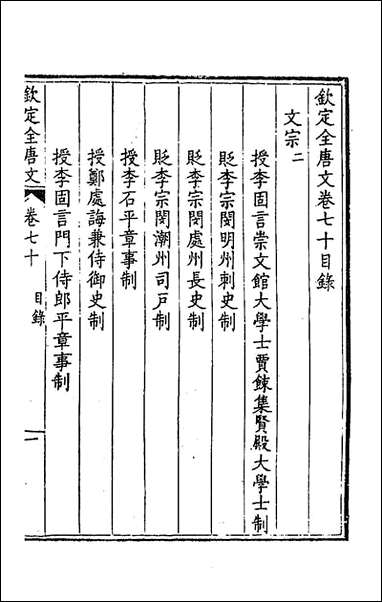 欽定全唐文卷七十目錄
文宗二
授李固言崇文館大學士賈餗集賢殿大學士制
貶李宗閔明州刺史制
貶李宗閔處州長史制
貶李宗閔潮州司戶制
授李石平章事制
授鄭處誨兼侍御史制
授李固言門下侍郎平章事制
欽定全唐文
卷七十
目錄
一